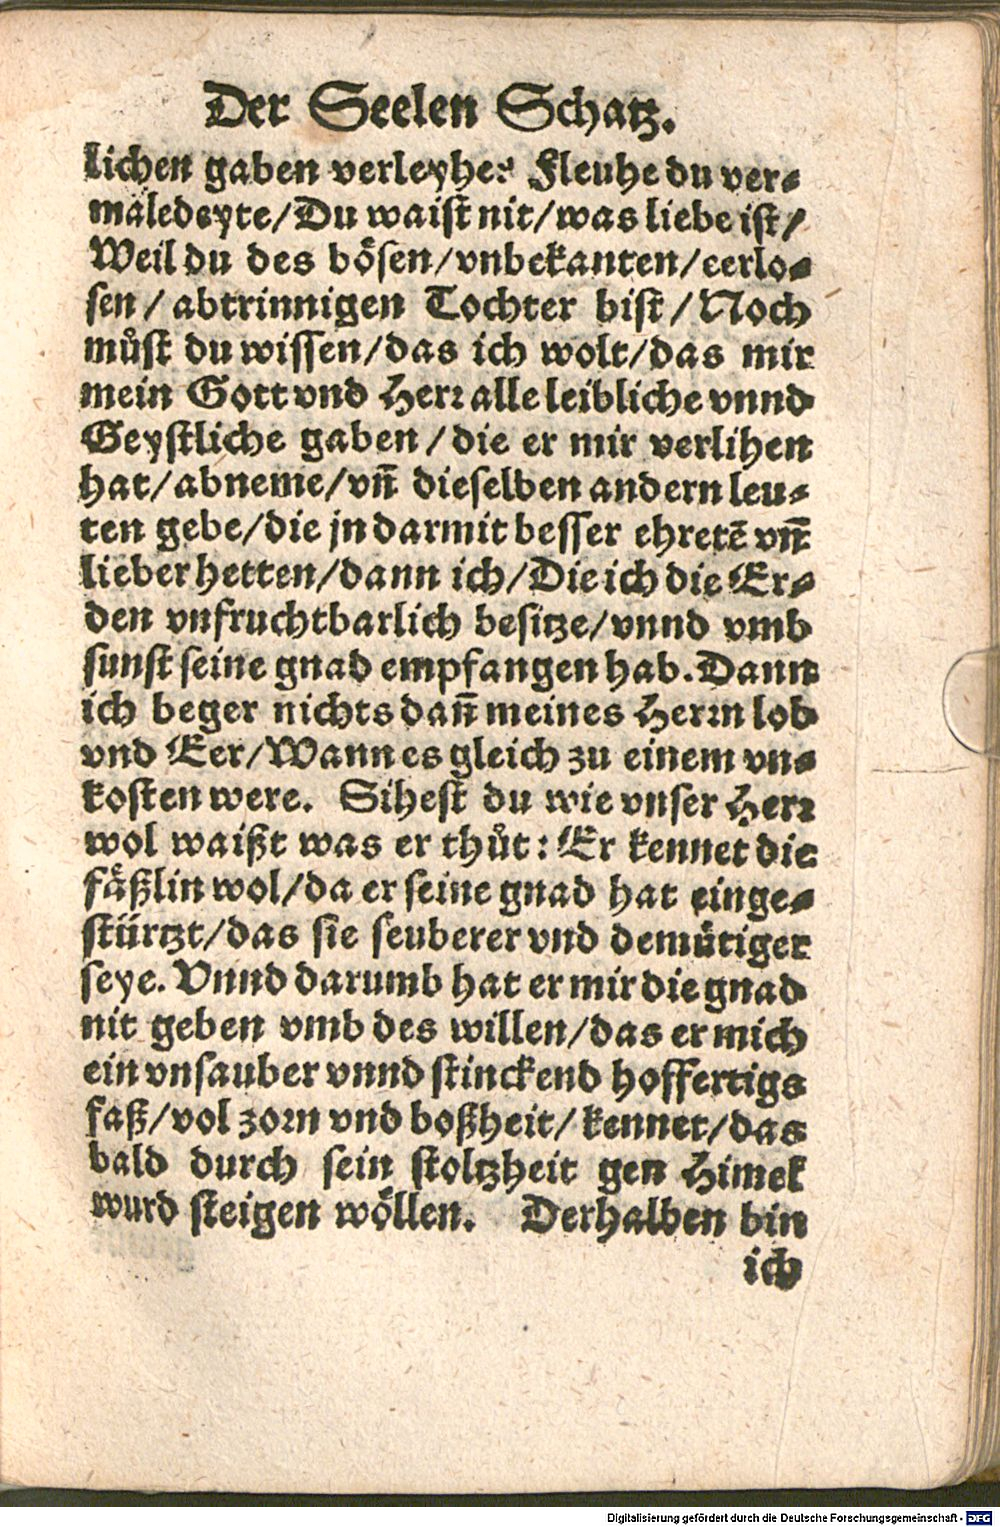 Der Seelen Schatz.
lichen gaben verleyhe? Fleuhe du ver-
maledeyte/Du waist nit/was liebe ist/
Weil du des bösen/vnbekanten/eerlo-
sen/abtrinnigen Tochter bist/Noch
můst du wissen/das ich wolt/das mir
mein Gott vnd Herr alle leibliche vnnd
Geystliche gaben/die er mir verlihen
hat/abneme/vn̄ dieselben andern leu-
ten gebe/die jn darmit besser ehretē vn̄
lieber hetten/dann ich/Die ich die Er-
den vnfruchtbarlich besitze/vnnd vmb
sunst seine gnad empfangen hab. Dann
ich beger nichts dan̄ meines Herrn lob
vnd Eer/Wann es gleich zu einem vn-
kosten were. Sihest du wie vnser Herr
wol waißt was er thůt: Er kennet die
fäßlin wol/da er seine gnad hat einge-
stürtzt/das sie seuberer vnd demütiger
seye. Vnnd darumb hat er mir die gnad
nit geben vmb des willen/das er mich
ein vnsauber vnnd stinckend hoffertigs
faß/vol zorn vnd boßheit/kennet/das
bald durch sein stoltzheit gen Himel
wurd steigen wöllen. Derhalben bin
ich
Digitalisierung gefördert durch die Deutsche Forschungsgemeinschaft - DFG